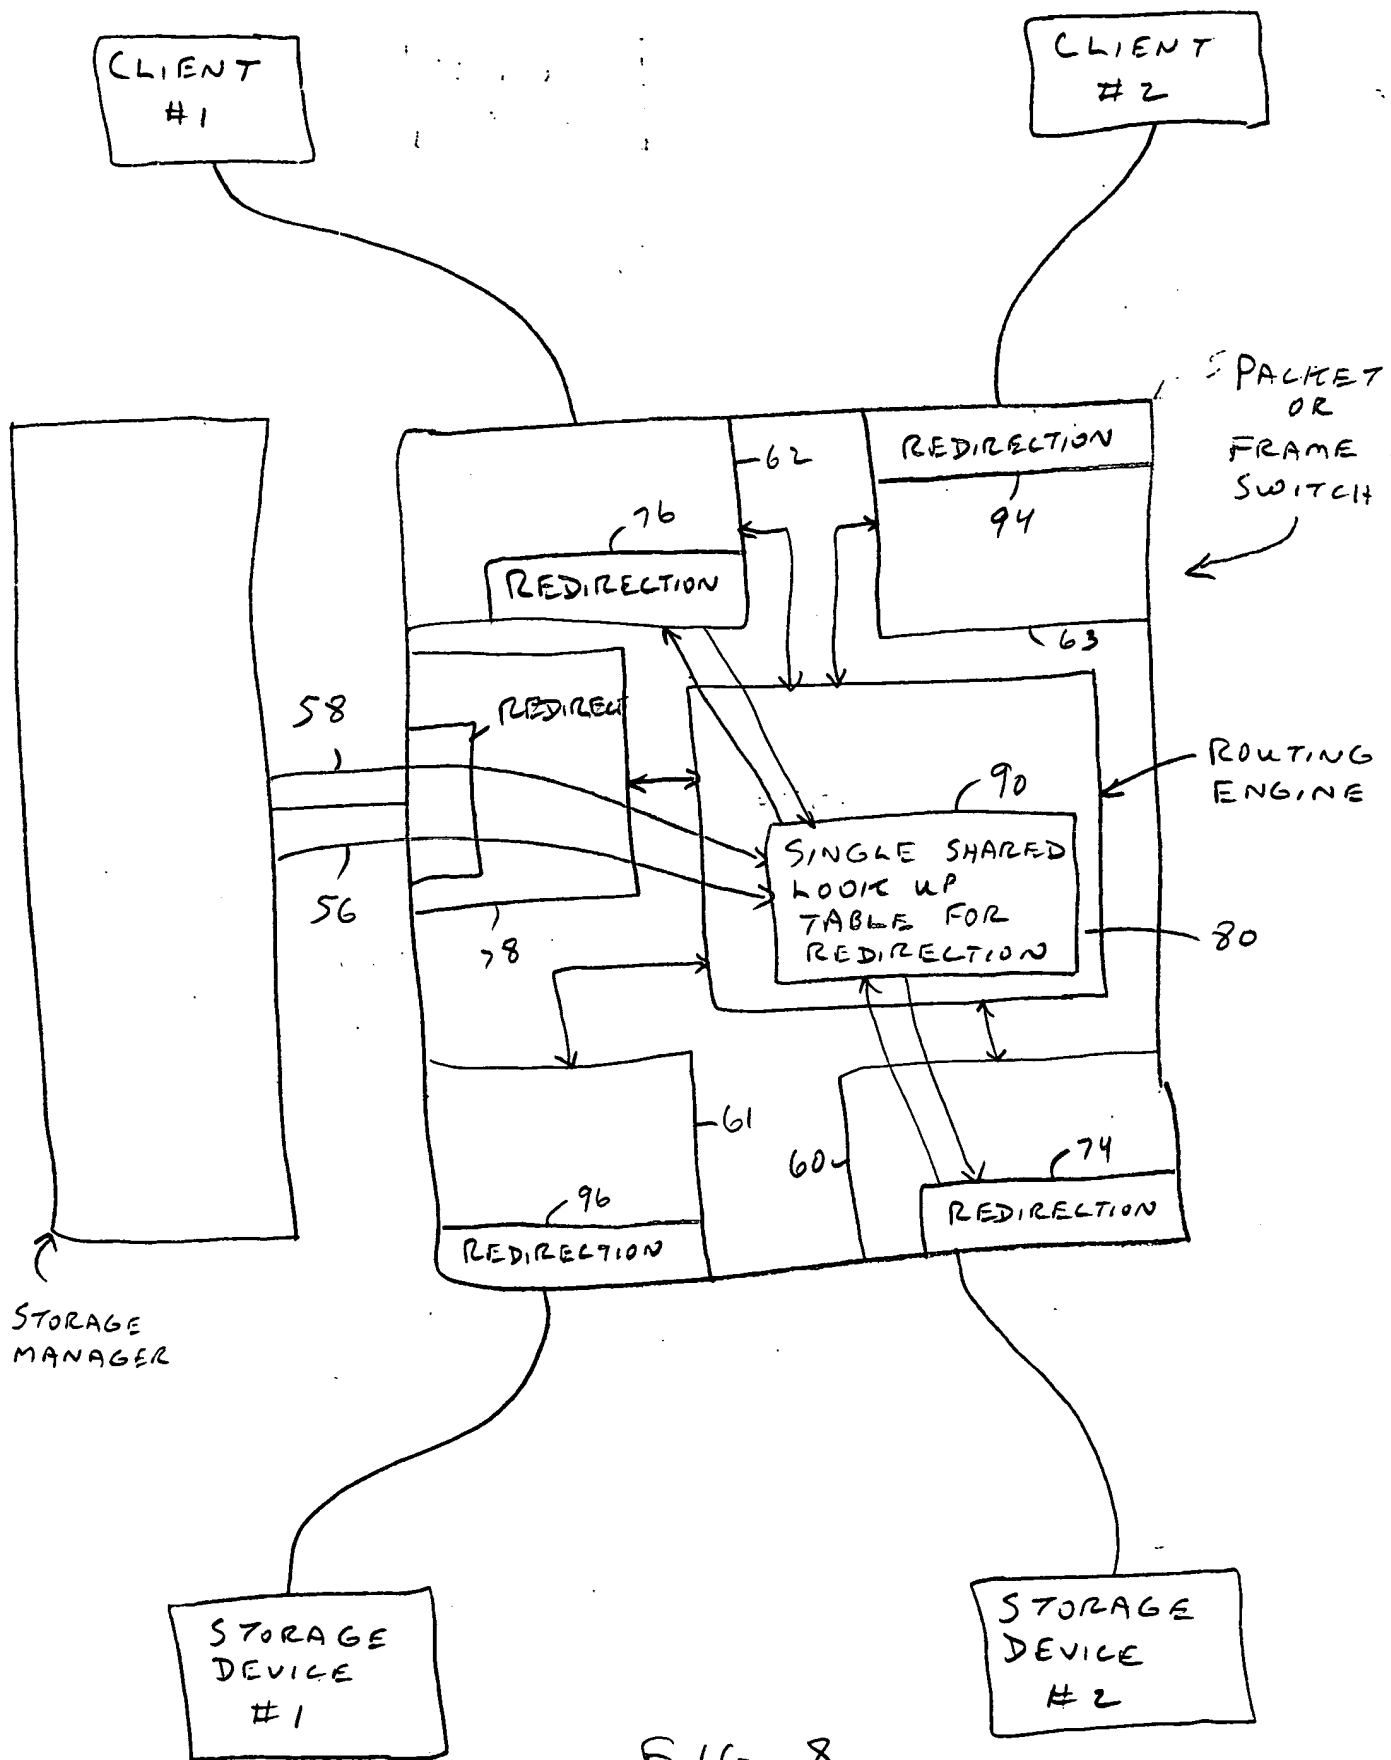 CLIENT
#1
CLIENT
#2
PACKET
OR
FRAME
SWITCH
62
REDIRECTION
94
76
REDIRECTION
63
58
REDIRECT
ROUTING
ENGINE
90
SINGLE SHARED
LOOK UP
TABLE FOR
REDIRECTION
56
78
80
61
60
74
REDIRECTION
96
REDIRECTION
STORAGE
MANAGER
STORAGE
DEVICE
#1
STORAGE
DEVICE
#2
FIG. 8